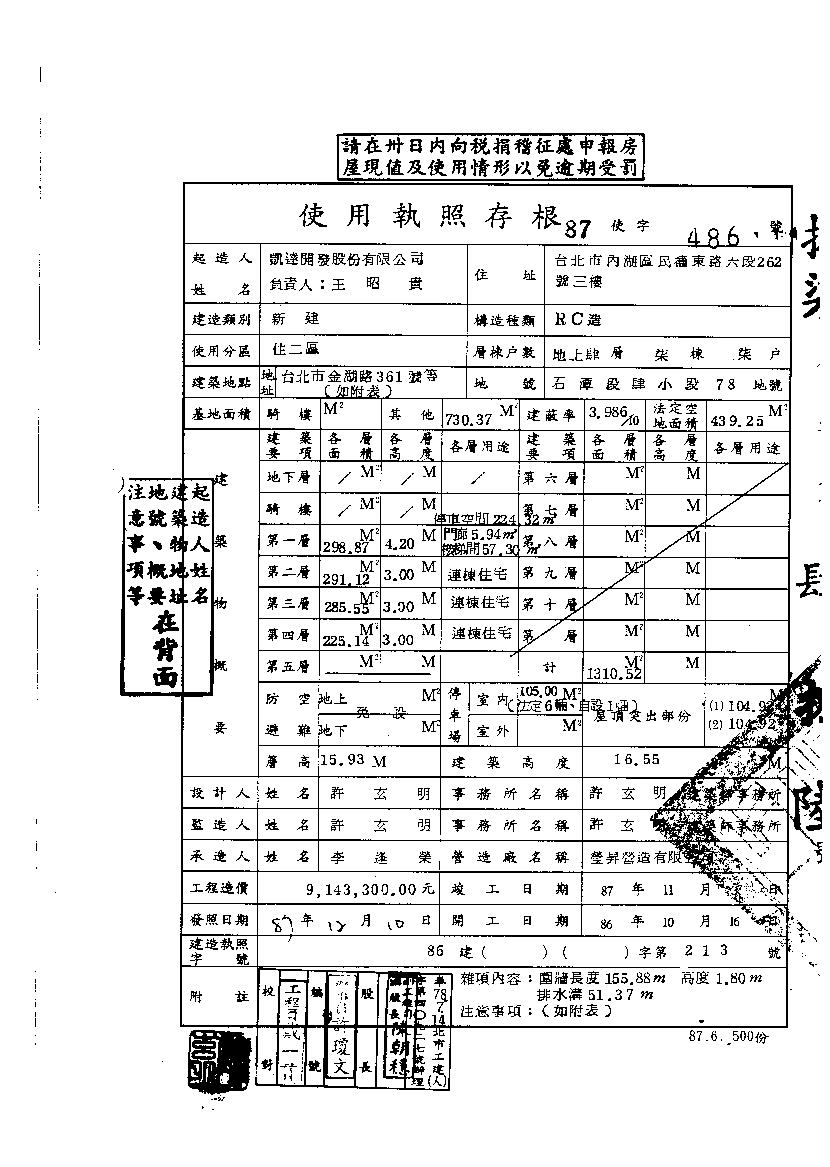 請在卅日內向稅捐稽征處申報房
屋現值及使用情形以免逾期受罰
使用執照存根 87 使字 486 號
起造人姓名 凱達開發股份有限公司
負責人：王昭貴
住址 台北市內湖區民權東路六段262
號三樓
建造類別 新建 構造種類 RC造
使用分區 住二區 層棟戶數 地上肆層 柒棟 柒戶
建築地點 地址 台北市金湖路361號等
(如附表)
地號 石潭段肆小段 78 地號
基地面積 騎樓 M² 其他 730.37 M² 建蔽率 3.986/10 法定空地面積 439.25 M²
建築物概要
建築要項 各層面積 各層高度 各層用途 建築要項 各層面積 各層高度 各層用途
地下層 / M² / M / 第六層 M² M
騎樓 / M² / M 停車空間224.32m² 第七層 M² M
第一層 298.87 M² 4.20 M 門廊5.94m² 梯間57.30m² 第八層 M² M
第二層 291.12 M² 3.00 M 連棟住宅 第九層 M² M
第三層 285.55 M² 3.00 M 連棟住宅 第十層 M² M
第四層 225.14 M² 3.00 M 連棟住宅 第 層 M² M
第五層 M² M 計 1310.52 M² M
防空避難 地上 M² 免設 地下 M²
停車場 室內 105.00 M² (法定6輛、自設1輛)
室外 M²
屋頂突出部份 (1) 104.92
(2) 104.92
M
簷高 15.93 M 建築高度 16.55 M
設計人 姓名 許玄明 事務所名稱 許玄明建築師事務所
監造人 姓名 許玄明 事務所名稱 許玄明建築師事務所
承造人 姓名 李逢榮 營造廠名稱 瑩昇營造有限
工程造價 9,143,300.00元 竣工日期 87 年 11 月 日
發照日期 87 年 12 月 10 日 開工日期 86 年 10 月 16 日
建造執照字號 86 建 ( ) ( ) 字第 213 號
附註
雜項內容：圍牆長度155.88m 高度1.80m
排水溝51.37m
注意事項：(如附表)
校對
編號
許瓊文
股長
股長陳朝
78.7.14北市工建(人)
87.6. 500份
起造人姓名
建築物地址
地號、概要
注意事項等
在背面